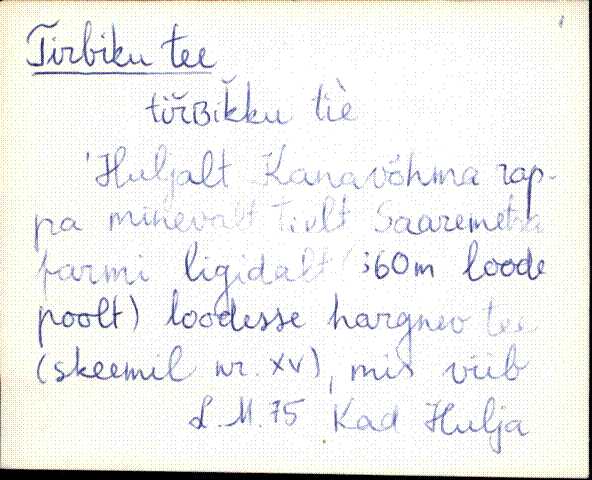 Tirbiku tee
tiřʙik̆ku tiè
'Huljalt Kanavõhma rap-
pa minevalt teelt Saaremetsa
farmi ligidalt (60m loode
poolt) loodesse hargnev tee
(skeemil nr. XV), mis viib
L.M. 75 Kad Hulja